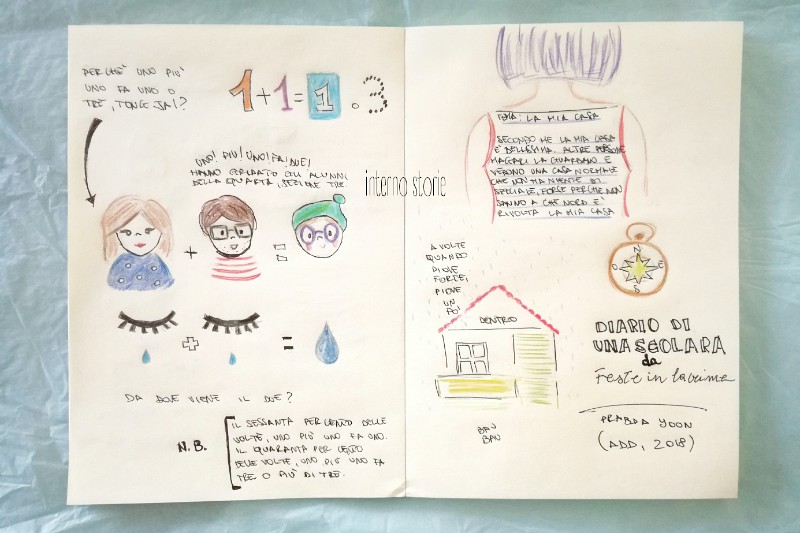 PERCHÉ UNO PIÙ
UNO FA UNO O
TRE, TONGE JAI?
1+1=1 o 3
UNO! PIÙ! UNO! FA! DUE!
HANNO GRIDATO GLI ALUNNI
DELLA QUARTA, SEZIONE TRE.
+
=
+
=
DA DOVE VIENE IL DUE?
N.B.
IL SESSANTA PER CENTO DELLE
VOLTE, UNO PIÙ UNO FA UNO.
IL QUARANTA PER CENTO
DELLE VOLTE, UNO PIÙ UNO FA
TRE. O PIÙ DI TRE.
interno storie
TEMA: LA MIA CASA
SECONDO ME LA MIA CASA
È BELLISSIMA. ALTRE PERSONE
MAGARI LA GUARDANO E
VEDONO UNA CASA NORMALE
CHE NON HA NIENTE DI
SPECIALE, FORSE PERCHÉ NON
SANNO A CHE NORD È
RIVOLTA LA MIA CASA
N
O
E
S
A VOLTE
QUANDO
PIOVE
FORTE,
PIOVE
UN
PO'
DENTRO
BAU
BAU
DIARIO DI
UNA SCOLARA
da
Feste in lacrime
PRABDA YOON
(ADD, 2018)